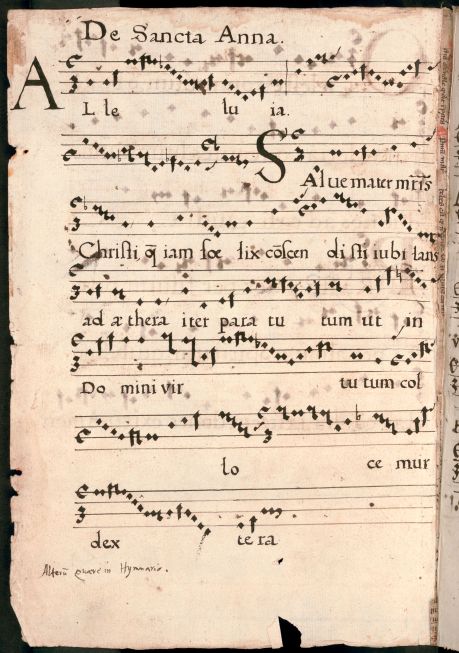 De Sancta Anna.
AL le lu ia.
SAlve mater mr̄is
Christi q̄ iam foe lix cōscen di sti iubi lans
ad æthera iter para tu tum ut in
Do mini vir tu tum col
lo ce mur
dex te ra
Alterū quære in Hymnario.